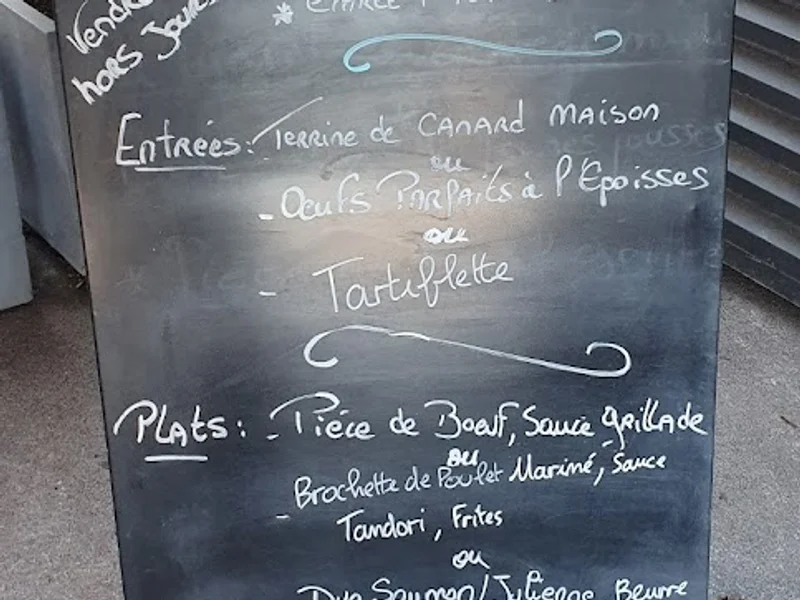 Vendre
hors Jours
* Entrée
Entrées: - Terrine de Canard Maison
ou
- Oeufs Parfaits à l'Époisses
ou
- Tartiflette
Plats: - Piéce de Boeuf, Sauce grillade
ou
- Brochette de Poulet Mariné, Sauce
Tandori, Frites
ou
Duo Saumon/Julienne Beurre